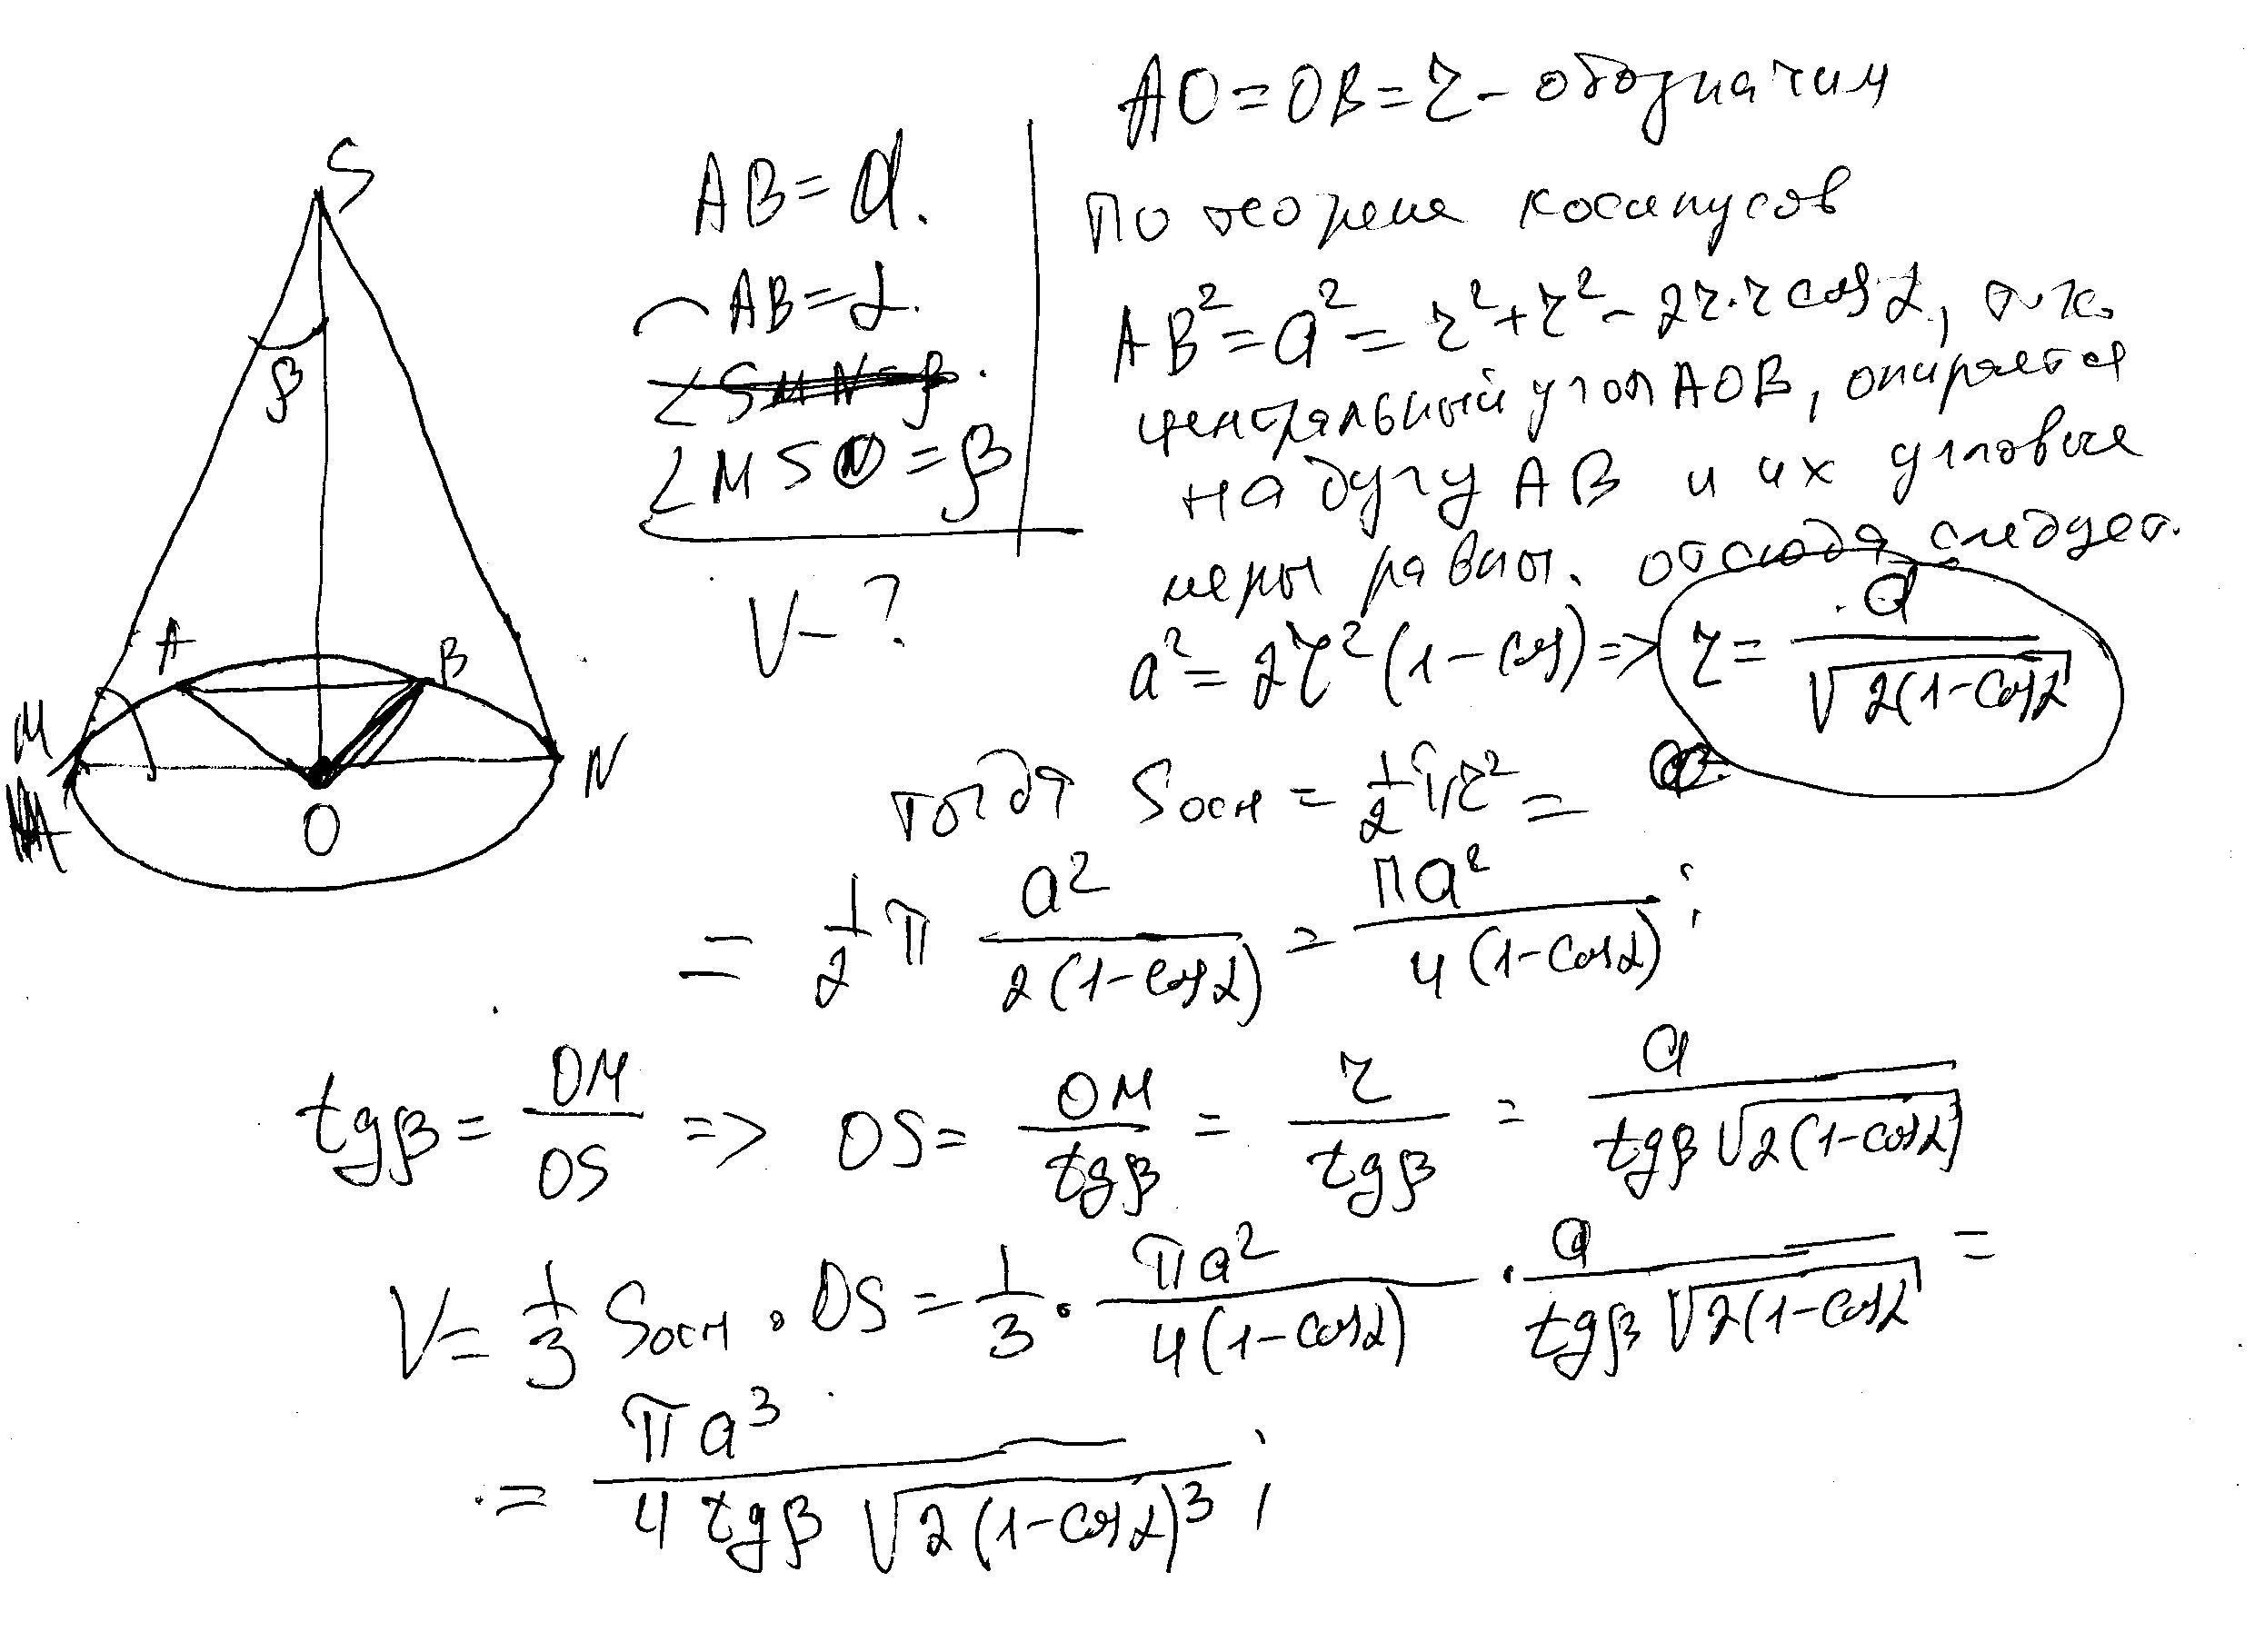 S
β
A
B
M
N
O
AB = a.
◠AB = α.
∠SMN = β.
∠MSO = β
V - ?
AO = OB = r - обозначим
По теореме косинусов
AB² = a² = r² + r² - 2r·r cos α, т.к.
центральный угол AOB, опирается
на дугу AB и их угловые
меры равны. отсюда следует.
a² = 2r²(1 - cos) => r = a / √2(1 - cos α
тогда Sосн = 1/2 πr² =
= 1/2 π a² / 2(1 - cos α) = πa² / 4(1 - cos α) ;
tgβ = OM / OS => OS = OM / tgβ = r / tgβ = a / tgβ √2(1 - cos α)
V = 1/3 Sосн · OS = 1/3 · πa² / 4(1 - cos α) · a / tgβ √2(1 - cos α =
= πa³ / 4 tgβ √2(1 - cos α)³ ;